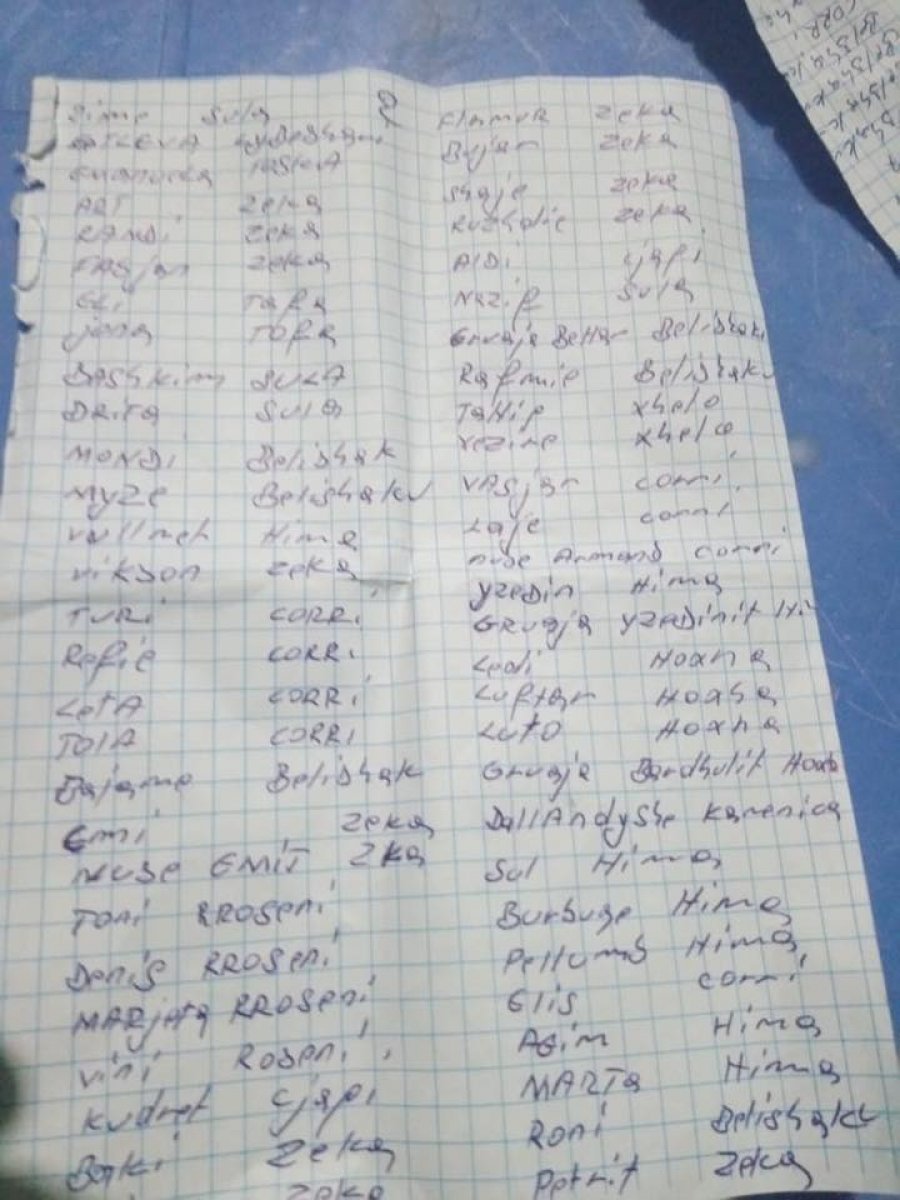 2
Sula
ART Zeka
RAMDi Zeka
Zeka
Eli Tafa
jona Tofa
Bashkim SULA
Drita Sula
MONDi Belishak
Myze Belishaku
vullnet Hima
vikson Zeka
Turi CORRi
Refie CORRi
LetA CORRi
CORRi
Bajame Belishak
Emi Zeka
Nuse EMIT Zka
Toni RROSeni
Denis RROSeni
MARjeta RROSeni
Vini Roseni
Kudret Cjapi
Zeka
Zeka
Flamur Zeka
Bujar Zeka
Shaje Zeka
Ruzhdie Zeka
AlDi Cjapi
Nazif Sula
Gruaja Belishaku
Rafmie Belishaku
TaHip Xhelo
Xhelo
VASjan Corri
Laje Corri
nuse Armand Corri
yzeDin Hima
GRuaja YzeDinit Hi
Ledi Hoxha
Luftar Hoxha
Luto Hoxha
Gruaja Bardhulit Hoxh
DallAndyshe Kamenica
Sul Hima
Burbuqe Hima
Pellumb Hima
Elis Corri
Agim Hima
MARTA Hima
Roni Belishaku
Petrit Zeka